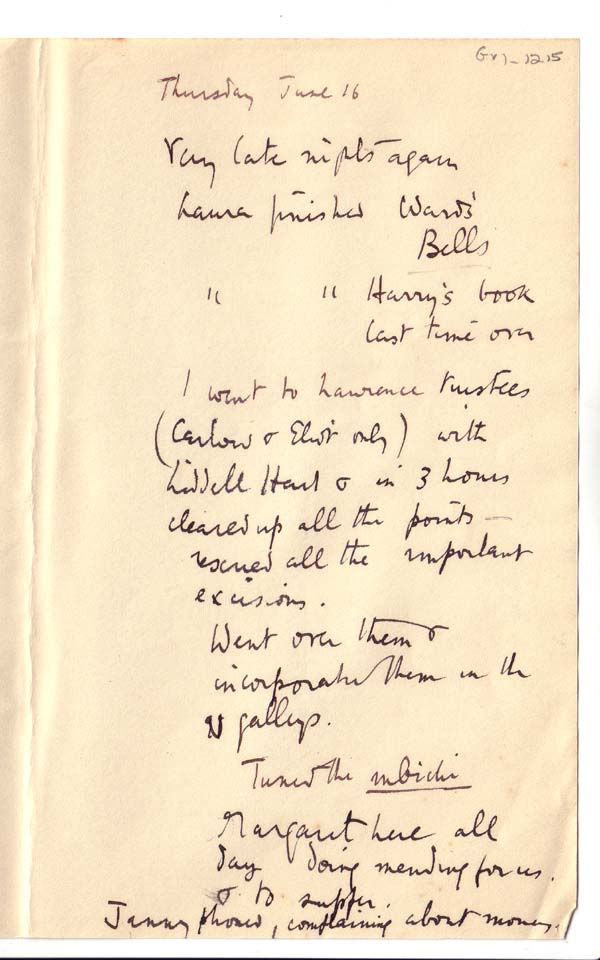 Thursday June 16
Very late nights again
Laura finished Ward's
Bells
" " Harry's book
last time over
I went to Lawrence trustees
(Carlow & Eliot only) with
Liddell Hart & in 3 hours
cleared up all the points —
rescued all the important
excisions.
Went over them &
incorporated them in the
galleys.
Tuned the mbichi
Margaret here all
day doing mending for us.
& to supper.
Janny phoned, complaining about money.